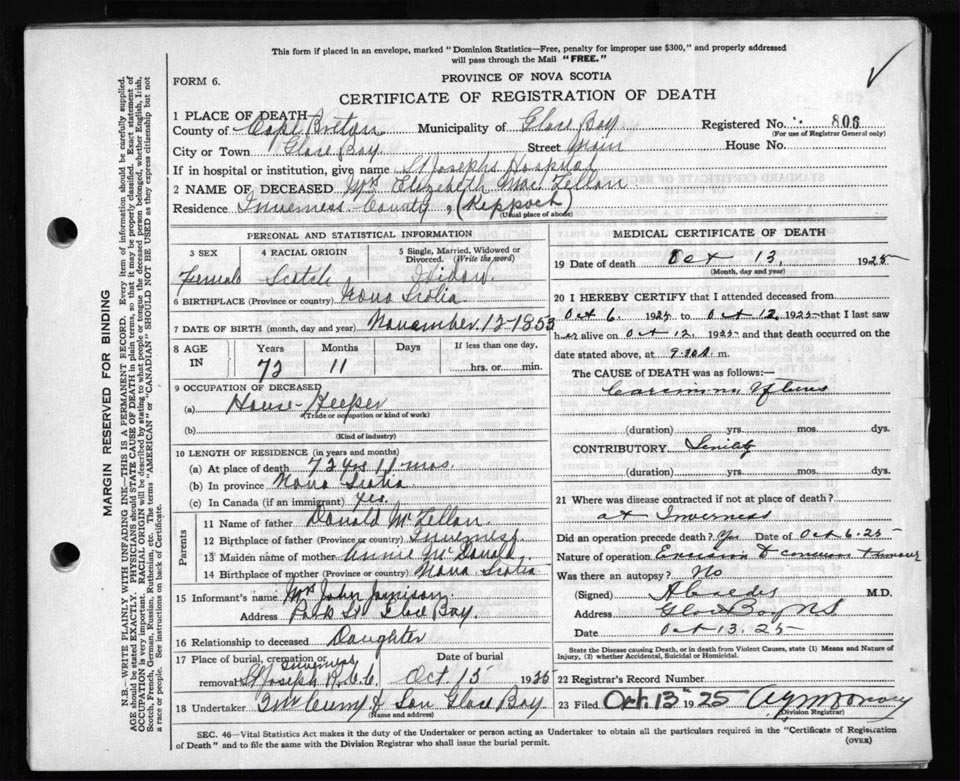 This form if placed in an envelope, marked "Dominion Statistics—Free, penalty for improper use $300," and properly addressed
will pass through the Mail "FREE."
FORM 6.
PROVINCE OF NOVA SCOTIA
CERTIFICATE OF REGISTRATION OF DEATH
1 PLACE OF DEATH
County of Cape Breton Municipality of Glace Bay Registered No. 806
(For use of Registrar General only)
City or Town Glace Bay Street Main House No.
If in hospital or institution, give name St Josephs Hospital
2 NAME OF DECEASED Mrs Elizabeth Mac Lellan
Residence Inverness County, (Keppoch)
(Usual place of abode)
PERSONAL AND STATISTICAL INFORMATION
3 SEX 4 RACIAL ORIGIN 5 Single, Married, Widowed or Divorced. (Write the word)
Female Scotch Widow
6 BIRTHPLACE (Province or country) Nova Scotia
7 DATE OF BIRTH (month, day and year) November 12-1853
8 AGE IN Years Months Days If less than one day,
72 11 hrs. or min.
9 OCCUPATION OF DECEASED
(a) House-Keeper
(Trade or occupation or kind of work)
(b)
(Kind of industry)
10 LENGTH OF RESIDENCE (in years and months)
(a) At place of death 72 yrs 11 mos.
(b) In province Nova Scotia
(c) In Canada (if an immigrant) Yes.
Parents
11 Name of father Donald McLellan
12 Birthplace of father (Province or country) Inverness
13 Maiden name of mother Annie McDonald
14 Birthplace of mother (Province or country) Nova Scotia
15 Informant's name Mrs John Jamieson
Address Park St Glace Bay.
16 Relationship to deceased Daughter
17 Place of burial, cremation or removal Inverness St Joseph R.C.C. Date of burial Oct 15 1925
18 Undertaker Glace Bay
(Name and address)
MEDICAL CERTIFICATE OF DEATH
19 Date of death Oct 13, 1925
(Month, day and year)
20 I HEREBY CERTIFY that I attended deceased from
Oct 6. 1925 to Oct 12 1925 that I last saw
her alive on Oct 12 1925 and that death occurred on
date stated above, at 9.30 m.
The CAUSE of DEATH was as follows:
Carcinoma Uterus
(duration) yrs. mos. dys.
CONTRIBUTORY Senility
(duration) yrs. mos. dys.
21 Where was disease contracted if not at place of death?
at Inverness
Did an operation precede death? Yes Date of Oct 6.25
Nature of operation Excision
Was there an autopsy? No
(Signed) M.D.
Address Glace Bay NS
Date Oct 13.25
State the Disease causing Death, or in death from Violent Causes, state (1) Means and Nature of Injury, (2) whether Accidental, Suicidal or Homicidal.
22 Registrar's Record Number
23 Filed Oct. 13th 1925
(Division Registrar)
SEC. 46—Vital Statistics Act makes it the duty of the Undertaker or person acting as Undertaker to obtain all the particulars required in the "Certificate of Registration
of Death" and to file the same with the Division Registrar who shall issue the burial permit.
(OVER)
MARGIN RESERVED FOR BINDING
N.B.—WRITE PLAINLY WITH UNFADING INK—THIS IS A PERMANENT RECORD. Every item of information should be carefully supplied.
AGE should be stated EXACTLY. PHYSICIANS should STATE CAUSE OF DEATH in plain terms, so that it may be properly classified. Exact statement of
OCCUPATION is very important. RACIAL ORIGIN will be described by stating to what people or tongue the deceased person belonged, whether English, Irish,
Scotch, French, German, Russian, Ruthenian, etc. The terms "AMERICAN" or "CANADIAN" SHOULD NOT BE USED as they express citizenship but not
a race or people. See instructions on back of Certificate.